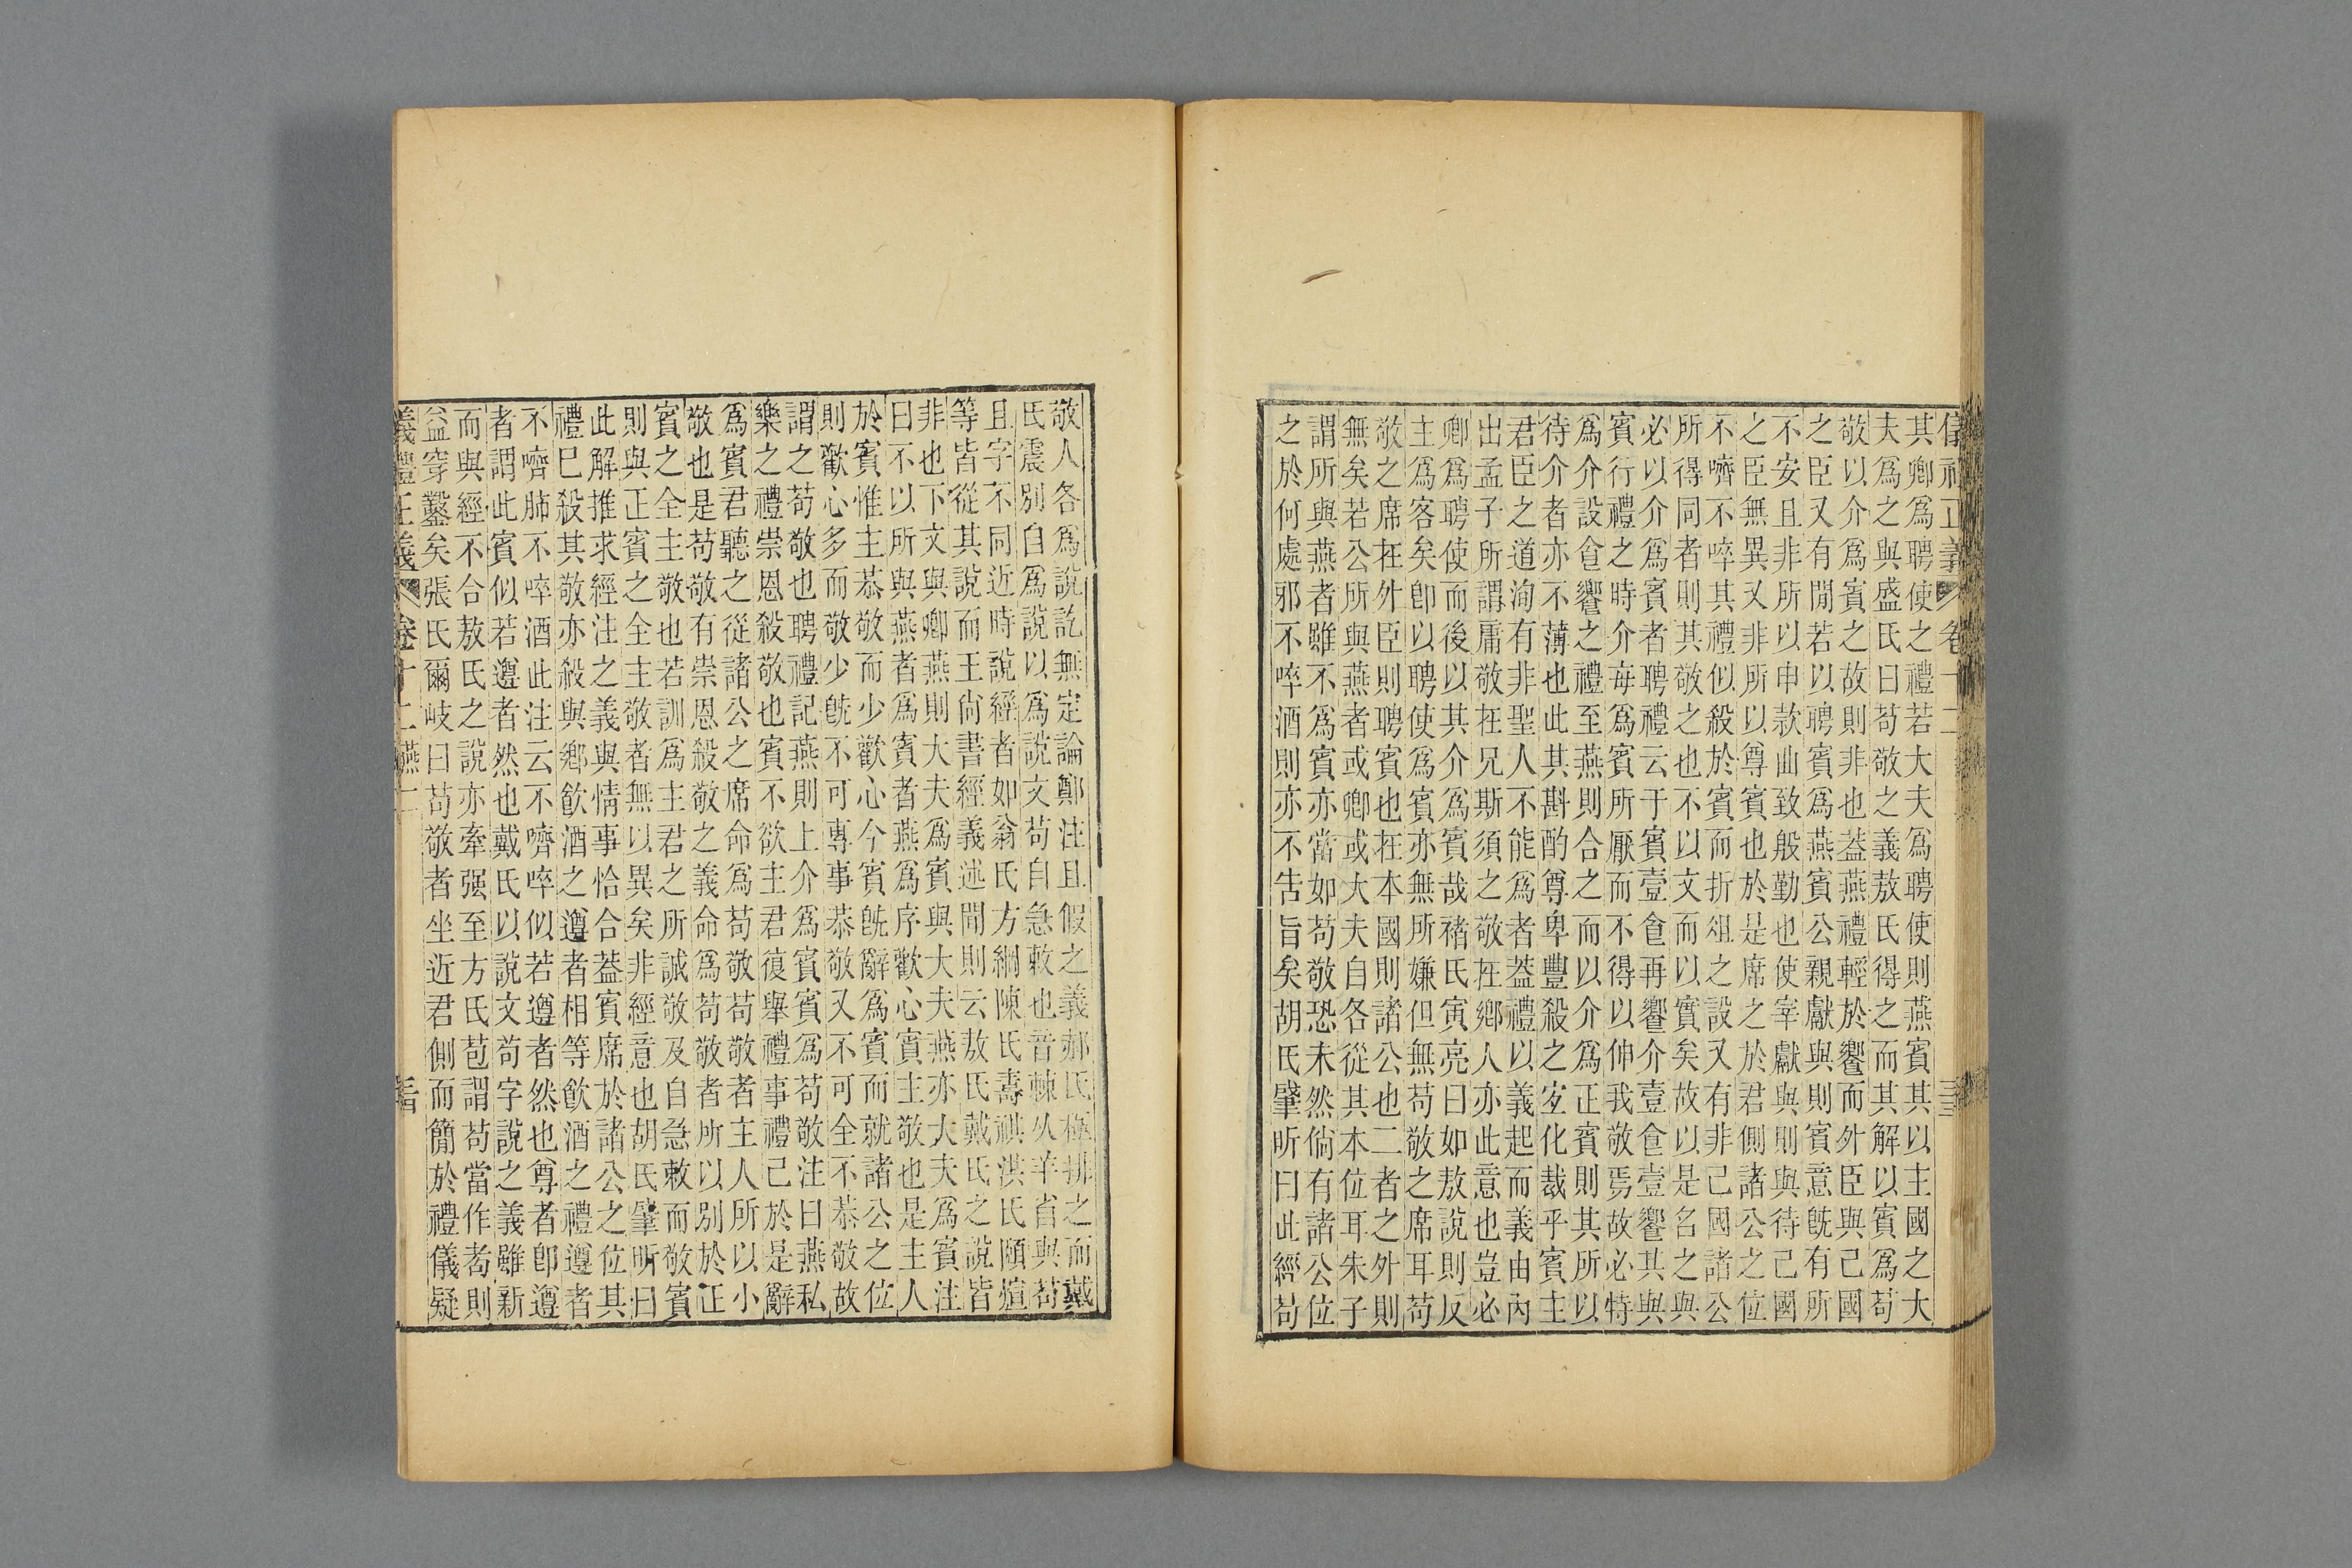 儀禮正義 卷十二 三三
其卿爲聘使之禮若大夫爲聘使則燕賓其以主國之大
夫爲之與盛氏曰苟敬之義敖氏得之而其解以賓爲苟
敬以介爲賓之故則非也葢燕禮輕於饗而外臣與己國
之臣又有閒若以聘賓爲燕賓公親獻與則賓意旣有所
不安且非所以申款曲致殷勤也使宰獻與則與待己國
之臣無異又非所以尊賓也於是席之於君側諸公之位
不嚌不啐其禮似殺於賓而折俎之設又有非己國諸公
所得同者則其敬之也不以文而以實矣故以是名之與
必以介爲賓者聘禮云于賓壹食再饗介壹食壹饗其與
賓行禮之時介每爲賓所厭而不得以伸我敬焉故必特
爲介設食饗之禮至燕則合之而以介爲正賓則其所以
待介者亦不薄也此其斟酌尊卑豐殺之宐化裁乎賓主
君臣之道洵有非聖人不能爲者葢禮以義起而義由內
出孟子所謂庸敬在兄斯須之敬在鄉人亦此意也豈必
卿爲聘使而後以其介爲賓哉褚氏寅亮曰如敖說則反
主爲客矣卽以聘使爲賓亦無所嫌但無苟敬之席耳苟
敬之席在外臣則聘賓也在本國則諸公也二者之外則
無矣若公所與燕者或卿或大夫自各從其本位耳朱子
謂所與燕者雖不爲賓亦當如苟敬恐未然倘有諸公位
之於何處邪不啐酒則亦不告旨矣胡氏肇昕曰此經苟
敬人各爲說訖無定論鄭注且假之義郝氏極排之而戴
氏震別自爲說以爲說文苟自急敕也音棘从羊省與苟
且字不同近時說經者如翁氏方綱陳氏壽祺洪氏頤煊
等皆從其說而王尙書經義述聞則云敖氏戴氏之說皆
非也下文與卿燕則大夫爲賓與大夫燕亦大夫爲賓注
曰不以所與燕者爲賓者燕爲序歡心賓主敬也是主人
於賓惟主恭敬而少歡心今賓旣辭爲賓而就諸公之位
則歡心多而敬少旣不可專事恭敬又不可全不恭敬故
謂之苟敬也聘禮記燕則上介爲賓賓爲苟敬注曰燕私
樂之禮崇恩殺敬也賓不欲主君復舉禮事禮己於是辭
爲賓君聽之從諸公之席命爲苟敬苟敬者主人所以小
敬也是苟敬有崇恩殺敬之義命爲苟敬者所以別於正
賓之全主敬也若訓爲主君之所誠敬及自急敕而敬賓
則與正賓之全主敬者無以異矣非經意也胡氏肇昕曰
此解推求經注之義與情事恰合葢賓席於諸公之位其
禮已殺其敬亦殺與鄉飮酒之遵者相等飮酒之禮遵者
不嚌肺不啐酒此注云不嚌啐似若遵者然也尊者卽遵
者謂此賓似若遵者然也戴氏以說文苟字說之義雖新
而與經不合敖氏之說亦牽强至方氏苞謂苟當作耇則
益穿鑿矣張氏爾岐曰苟敬者坐近君側而簡於禮儀疑
儀禮正義 卷十二燕二